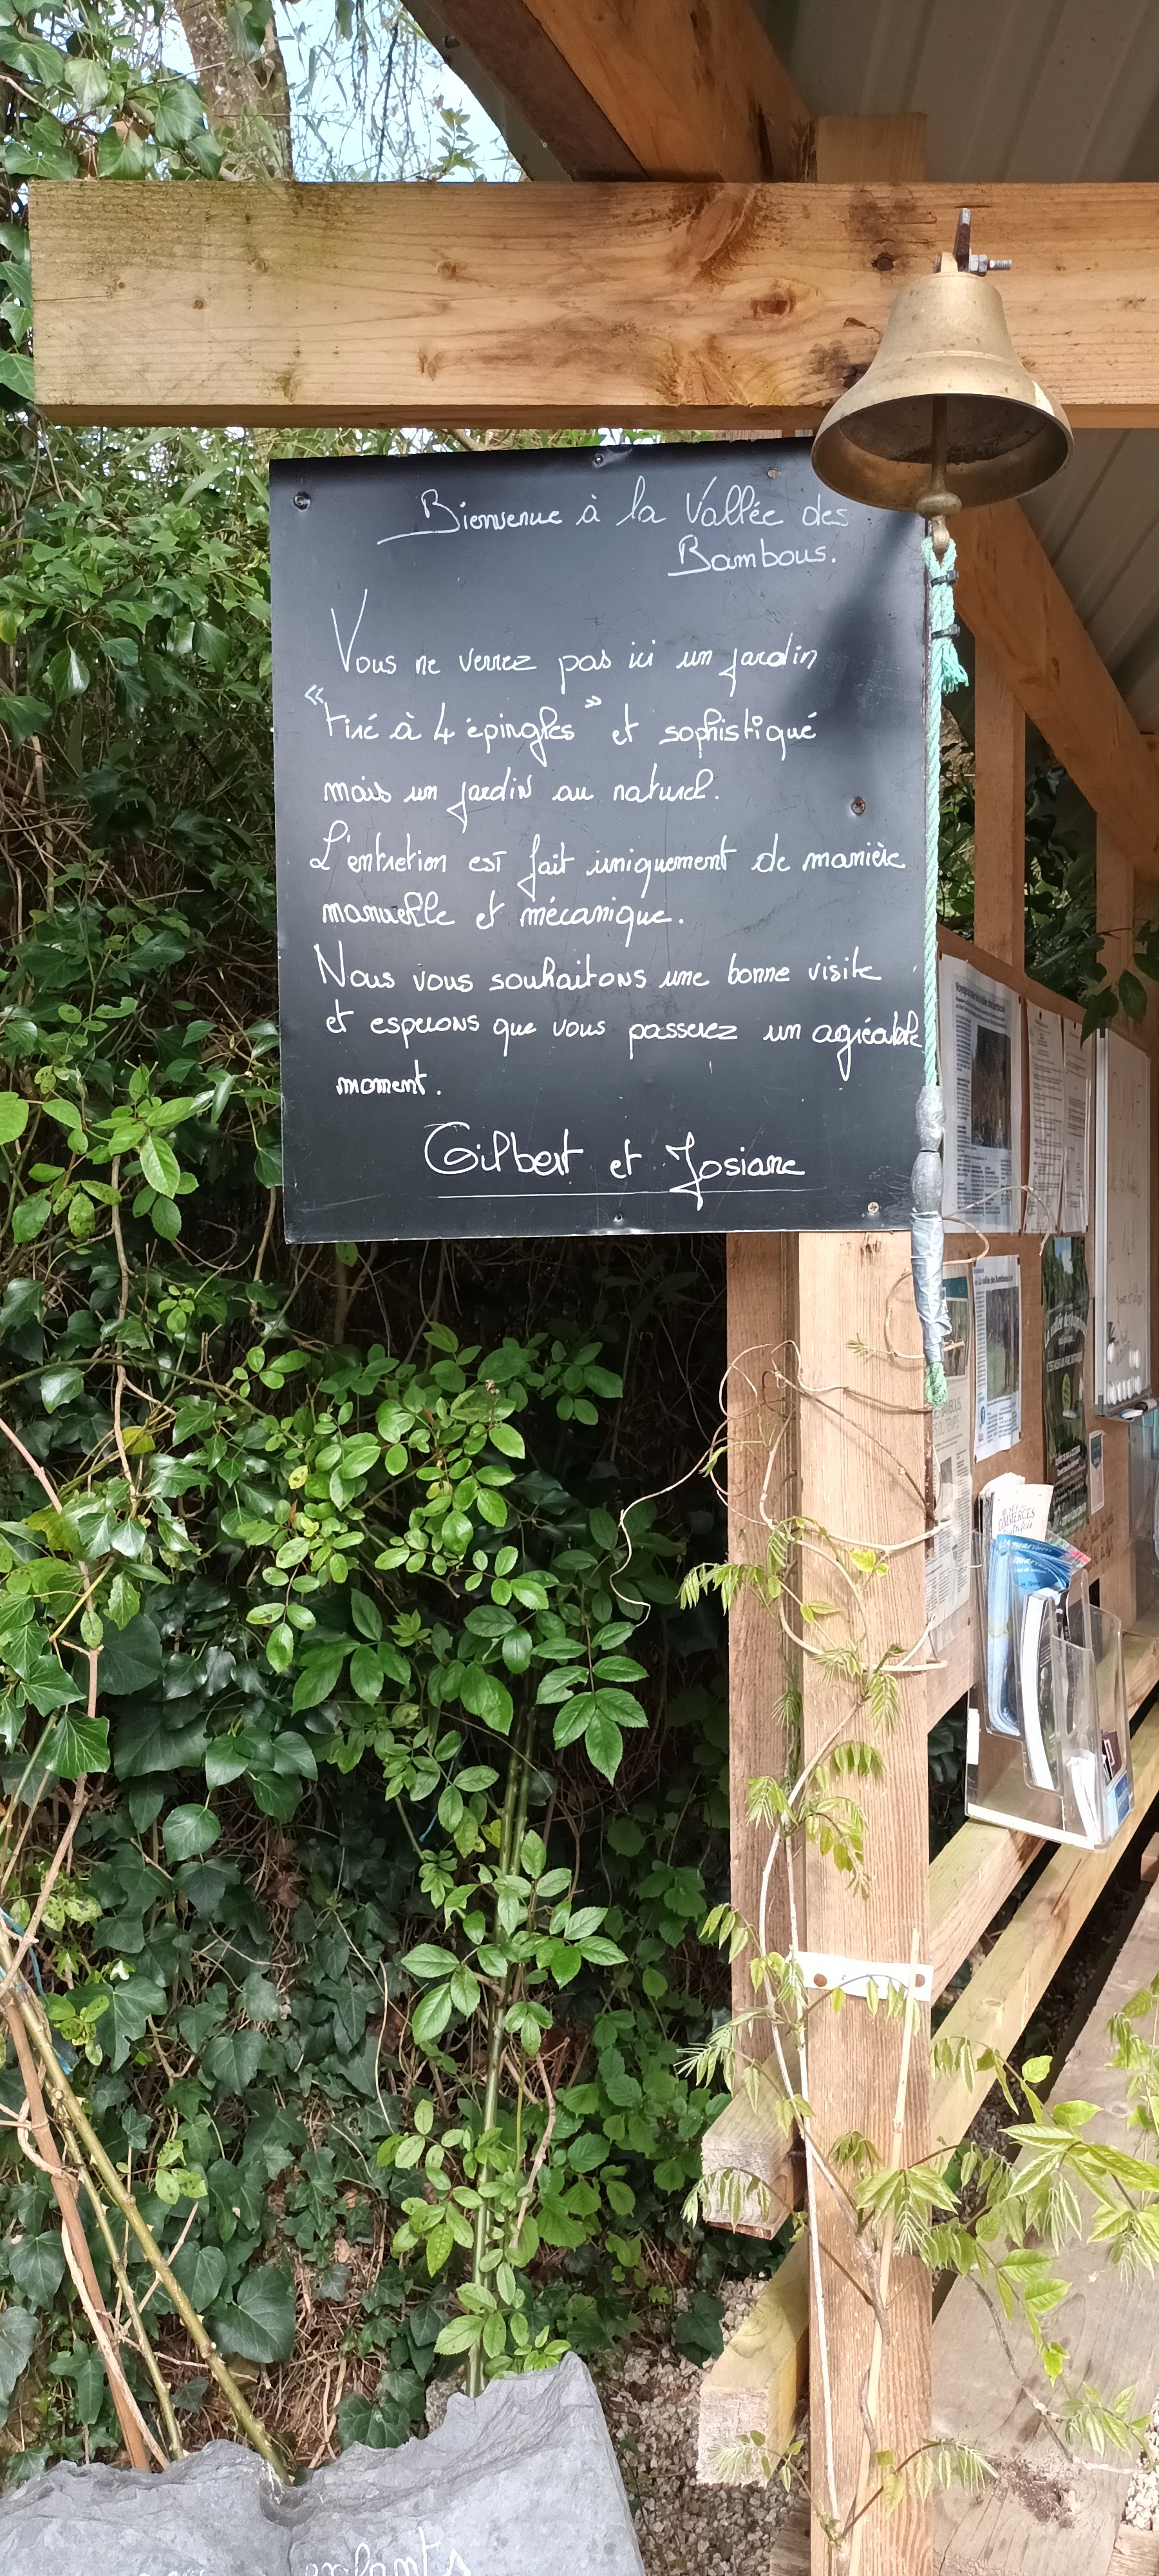 Bienvenue à la Vallée des
Bambous.
Vous ne verrez pas ici un jardin
"tiré à 4 épingles" et sophistiqué
mais un jardin au naturel.
L'entretien est fait uniquement de manière
manuelle et mécanique.
Nous vous souhaitons une bonne visite
et esperons que vous passerez un agréable
moment.
Gilbert et Josiane
COMMERCES
enfants